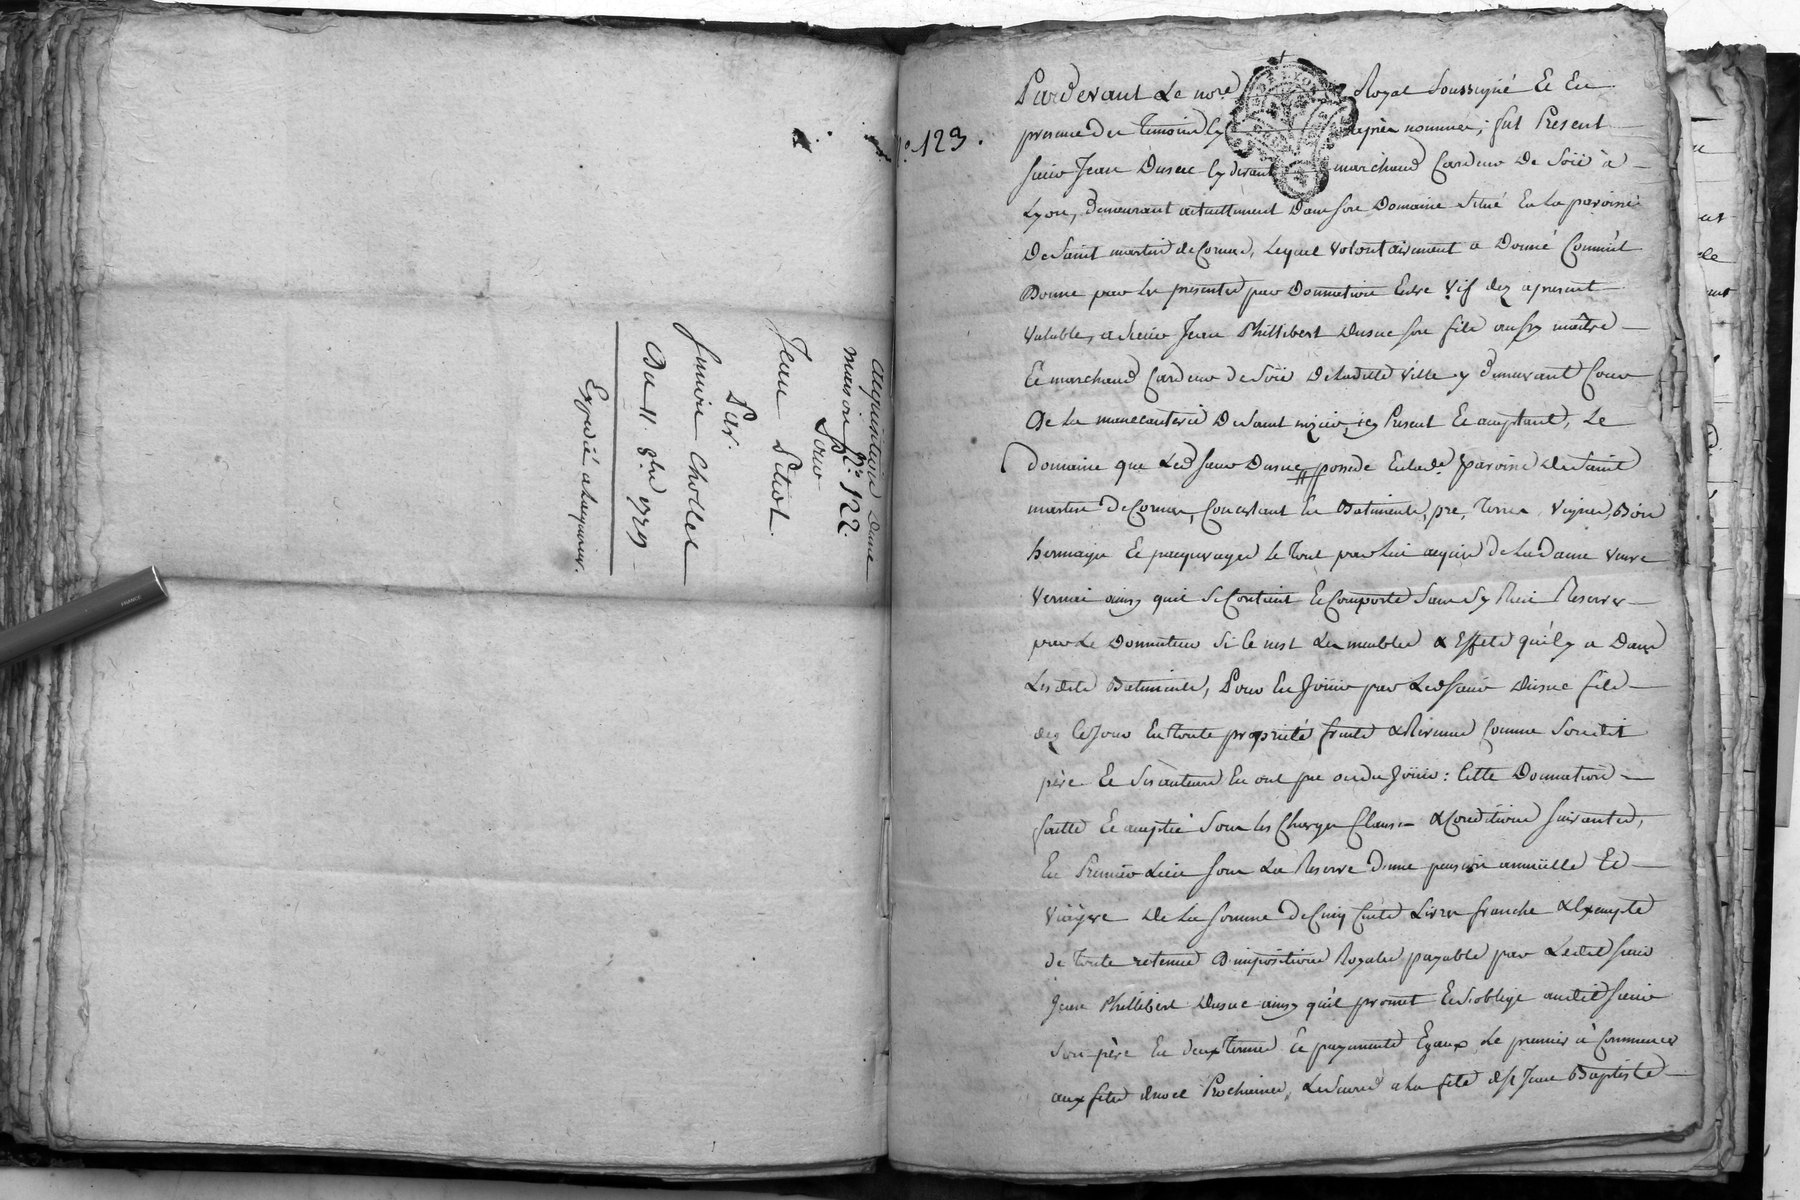 acquisition dune
maison N.° 122.
Pour
Jean Patiot
Par
Simeon Chollet
Du 11 8.bre 1779
Expedié a lacquereur.
FRANCE
N.° 123.
Pardevant Le no.re Royal Soussigné Et En
presence des temoins Cy apres nommés ; fut Present
sieur Jean Dusuc Cy devant marchand Cardeur De Soïe à
Lyon, demeurant actuellement Dans son Domaine Situé En La paroisse
De Saint martin de Cornas, Lequel Volontairement a Donné Comm'il
Donne par les presentes par Donnation Entre Vif dez apresent
Valable, a sieur Jean Phillibert Dusuc son fils aussy maître
Et marchand Cardeur de Soïe De Laditte Ville y demeurant Cour
De La manecanterie De saint nizier, icy Present Et acceptant, Le
Domaine que Led sieur Dusuc possede En lad.e paroisse De Saint
martin De Cornas, Concistant En Batiments, pré, Terres, Vignes, Bois
hermages Et paquerages le Tout par lui acquis de La Dame Veuve
Vernai ainsy quil Se Contient Et Comporte Sans Sy Rien Reserver
par Le Donnateur Si Ce nest Les meubles & Effets qu'il y a Dans
Lesdits Batiments, Pour En Joüir par Led sieur Dusuc fils
dez Ce Jour En toute propriété fruits & Revenus Comme Sondit
père Et Ses auteurs En ont pu ou du Joüir : Cette Donnation
faitte Et acceptée Sous les Charges Clauses & Conditions Suivantes,
En Premier Lieu sous La Reserve d'une pension annuelle Et
Viagere De La Somme De Cinq Cents Livres franche & Exempte
de Toute retenue D'impositions Royales payable par Ledit sieur
Jean Phillibert Dusuc ainsy qu'il promet Et S'oblige audit sieur
Son père En deux Termes Et payements Egaux Le premier à Commencer
aux fetes de noel Prochaines, Le Second a La fete de S.t Jean Baptiste